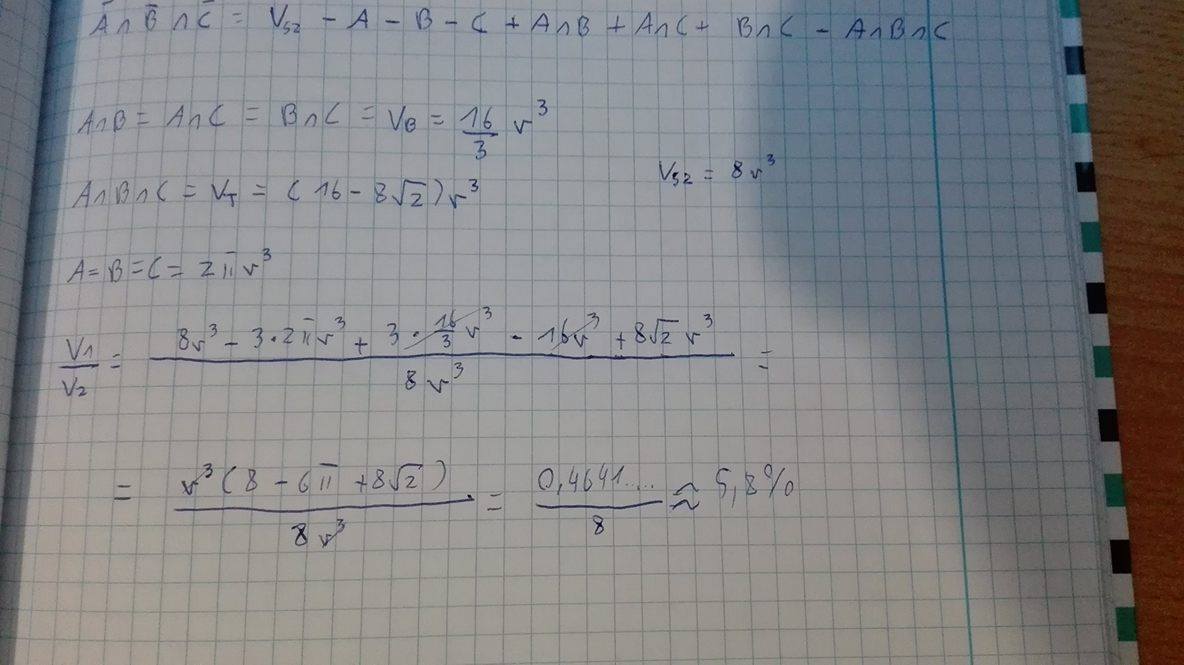 A̅∩B̅∩C̅ = V₅₂ - A - B - C + A∩B + A∩C + B∩C - A∩B∩C
A∩B = A∩C = B∩C = V_B = 16/3 r³
V₅₂ = 8r³
A∩B∩C = V_T = (16 - 8√2) r³
A = B = C = 2πr³
V1/V2 = (8r³ - 3·2πr³ + 3·16/3 r³ - 16r³ + 8√2 r³) / 8r³ =
= r³(8 - 6π + 8√2) / 8r³ = 0,4641.... / 8 ≈ 5,8%